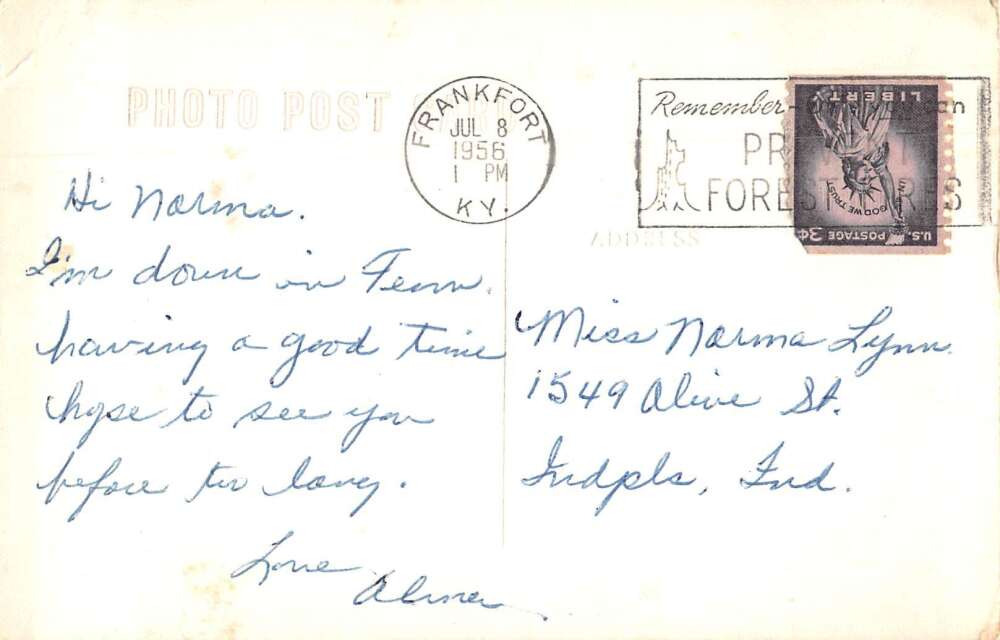 PHOTO POST CARD
FRANKFORT
JUL 8
1956
1 PM
KY.
Remember-Only You Can
PREVENT
FOREST FIRES
LIBERTY
IN GOD WE TRUST
U.S. POSTAGE 3¢
ADDRESS
Hi Norma.
I'm down in Tenn.
having a good time
hope to see you
before too long.
Love
Miss Norma Lynn.
1549 Olive St.
Indpls, Ind.